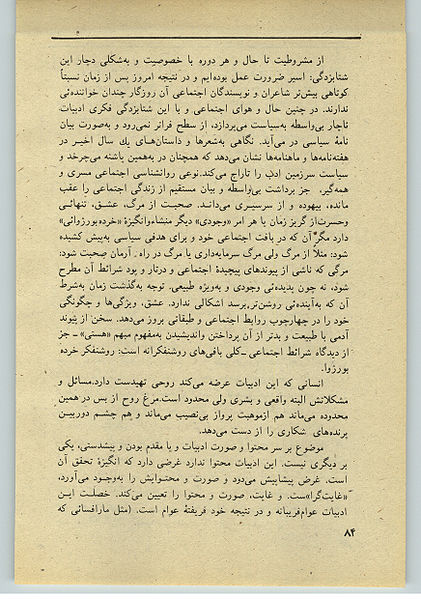 از مشروطیت تا حال و هر دوره با خصوصیت و به‌شکلی دچار این
شتابزدگی: اسیر ضرورت عمل بوده‌ایم و در نتیجه امروز پس از زمان نسبتاً
کوتاهی بیش‌تر شاعران و نویسندگان اجتماعی آن روزگار چندان خواندنی
ندارند. در چنین حال و هوای اجتماعی و با این شتابزدگی فکری ادبیات
ناچار بی‌واسطه به‌سیاست می‌پردازد، از سطح فراتر نمی‌رود و به‌صورت بیان
نامهٔ سیاسی در می‌آید. نگاهی به‌شعرها و داستان‌های یك سال اخیر در
هفته‌نامه‌ها و ماهنامه‌ها نشان می‌دهد که همچنان در به‌همین پاشنه می‌چرخد و
سیاست سرزمین ادب را تاراج می‌کند. نوعی روانشناسی اجتماعی مسری و
همه‌گیر، جز برداشت بی‌واسطه و بیان مستقیم از زندگی اجتماعی را عقب
مانده، بیهوده و از سرسیری می‌داند. صحبت از مرگ، عشق، تنهائی
وحسرت‌ازگریز زمان یا هر امر «وجودی» دیگر منشاءوانگیزهٔ «خرده‌بورژوائی»
دارد مگر آن که در بافت اجتماعی خود و برای هدفی سیاسی به‌پیش کشیده
شود: مثلاً از مرگ ولی مرگ سرمایه‌داری یا مرگ در راه آرمان صحبت شود:
مرگی که ناشی از پیوندهای پیچیدهٔ اجتماعی و درتار و پود شرائط آن مطرح
شود، نه چون پدیده‌ئی وجودی و به‌ویژه طبیعی. توجه به‌گذشت زمان به‌شرط
آن که به‌آینده‌ئی روشن‌تر برسد اشکالی ندارد. عشق، ویژگی‌ها و چگونگی
خود را در چهارچوب روابط اجتماعی و طبقاتی بروز می‌دهد. سخن از پیوند
آدمی با طبیعت و بدتر از آن پرداختن واندیشیدن به‌مفهوم مبهم «هستی» ـ جز
از دیدگاه شرائط اجتماعی ـ کلی بافی‌های روشنفکرانه است: روشنفکر خرده
بورژوا.
انسانی که این ادبیات عرضه می‌کند روحی تهیدست دارد. مسائل و
مشکلاتش البته واقعی و بشری ولی محدود است. مرغ روح از بس در همین
محدوده می‌ماند هم ازموهبت پرواز بی‌نصیب می‌ماند و هم چشم دوربین
پرنده‌های شکاری را از دست می‌دهد.
موضوع بر سر محتوا و صورت ادبیات و یا مقدم بودن و پیشدستی، یکی
بر دیگری نیست. این ادبیات محتوا ندارد غرضی دارد که انگیزهٔ تحقق آن
است. غرض پیشاپیش می‌دود و صورت و محتوایش را به‌وجود می‌آورد،
«غایت‌گرا»ست. و غایت، صورت و محتوا را تعیین می‌کند. خصلت این
ادبیات عوام‌فریبانه و در نتیجه خود فریفتهٔ عوام است. (مثل مارافسائی که
۸۴